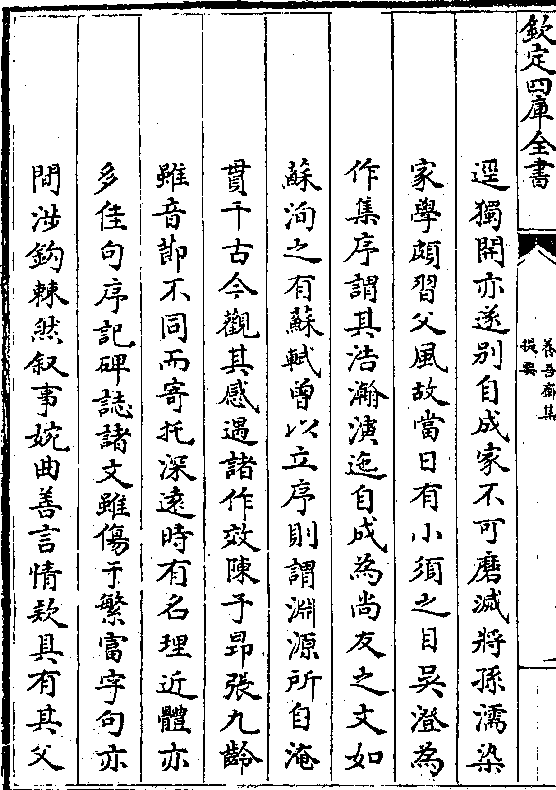 欽定四庫全書
養吾齋集
提要
逕獨開亦遂别自成家不可磨滅將孫濡染
家學頗習父風故當日有小須之目吳澄為
作集序謂其浩瀚演迤自成為尚友之文如
蘇洵之有蘇軾曾以立序則謂淵源所自淹
貫千古今觀其感遇諸作效陳子昻張九齡
雖音節不同而寄托深逺時有名理近體亦
多佳句序記碑誌諸文雖傷于繁富字句亦
間涉鈎棘然叙事婉曲善言情欵具有其父